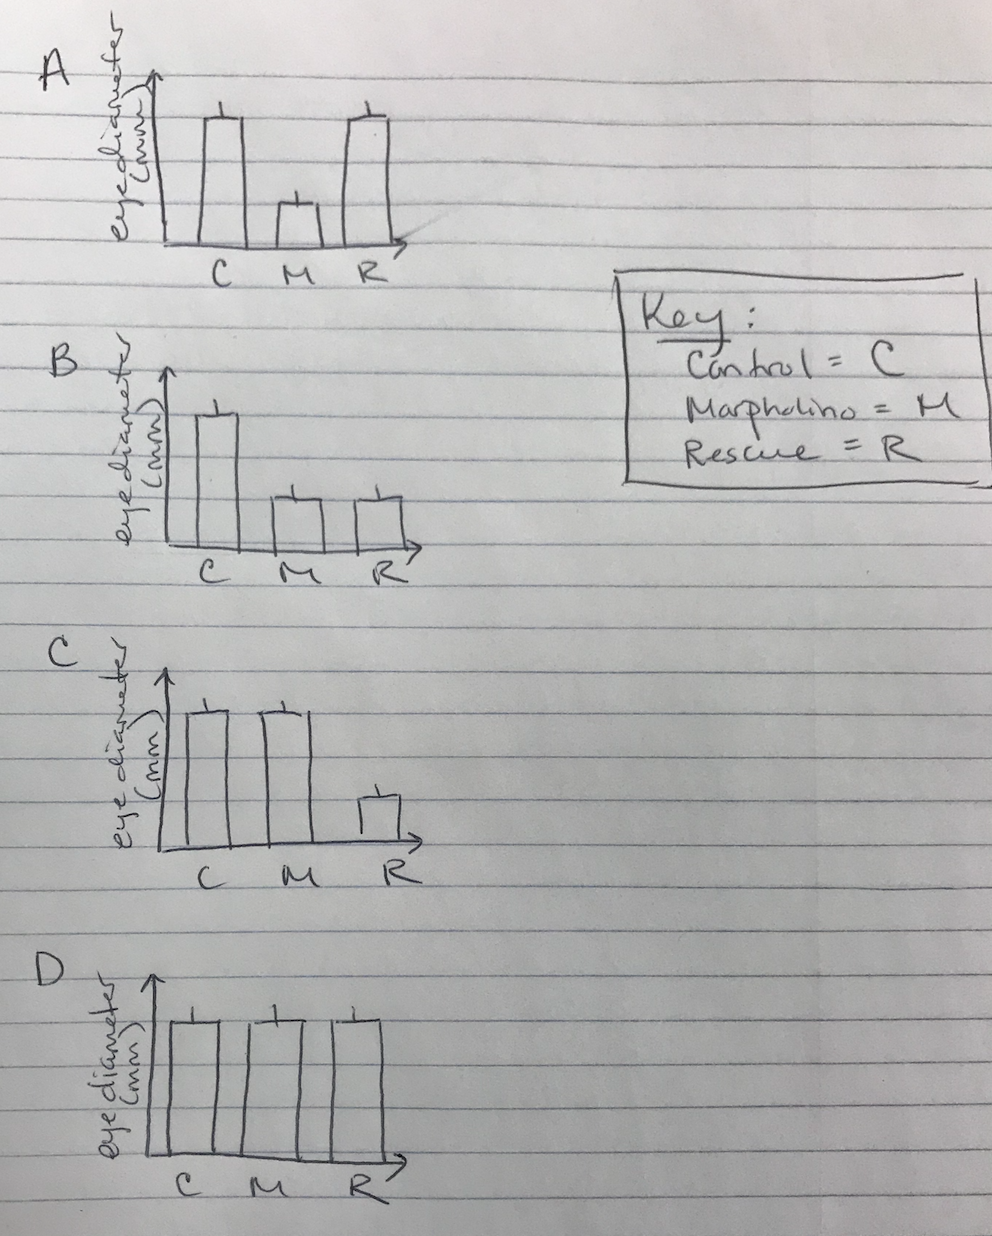 A
eye diameter
(mm)
C M R
Key:
Control = C
Morpholino = M
Rescue = R
B
eye diameter
(mm)
C M R
C
eye diameter
(mm)
C M R
D
eye diameter
(mm)
C M R